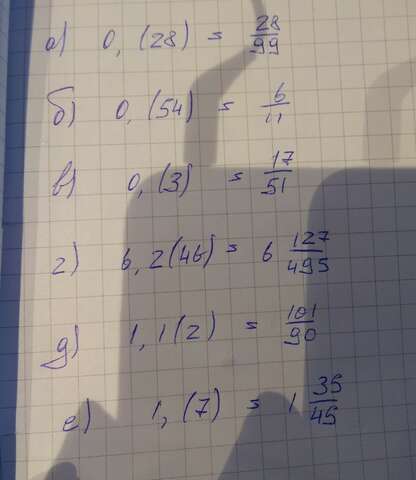 а) 0,(28) = 28/99
б) 0,(54) = 6/11
в) 0,(3) = 17/51
г) 6,2(46) = 6 122/495
д) 1,1(2) = 101/90
е) 1,(7) = 1 35/45